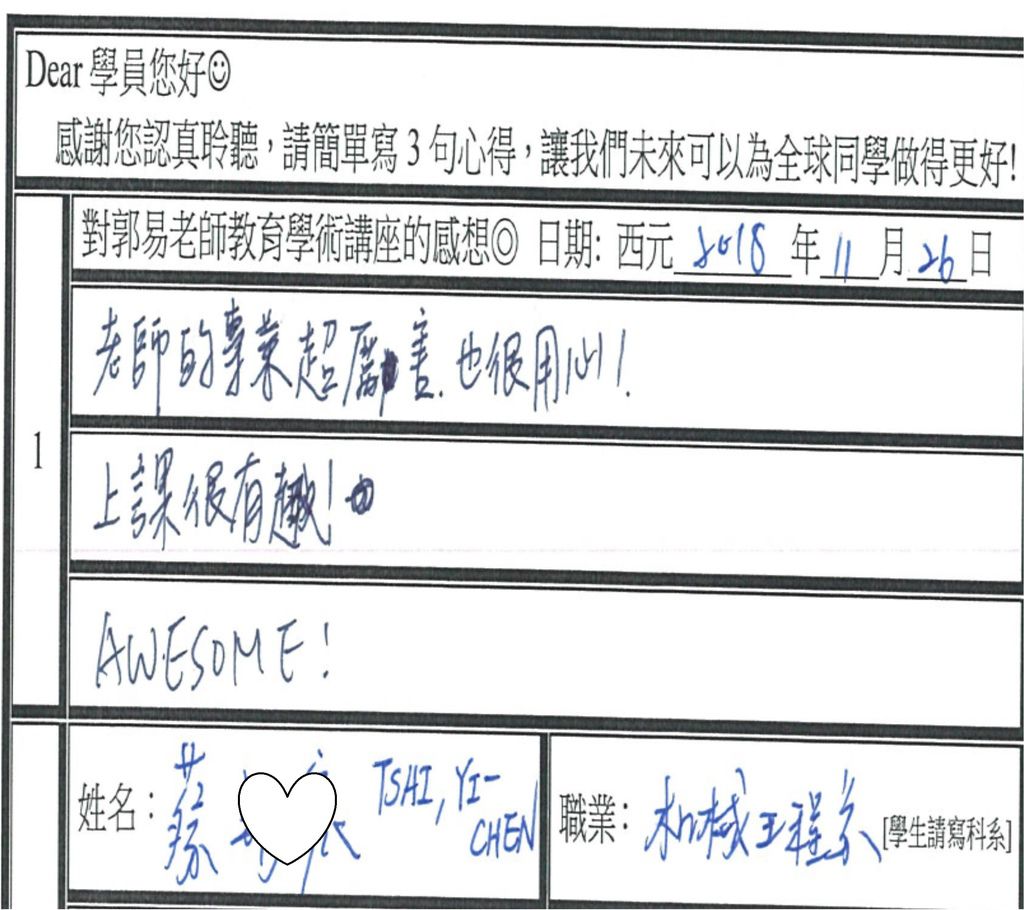 Dear 學員您好☺
感謝您認真聆聽，請簡單寫 3 句心得，讓我們未來可以為全球同學做得更好!
1
對郭易老師教育學術講座的感想◎ 日期: 西元 2018 年 11 月 26 日
老師的專業超厲害.也很用心!
上課很有趣!
AWESOME!
姓名： 蔡 TSHI, YI-CHEN
職業： 机械工程系 [學生請寫科系]